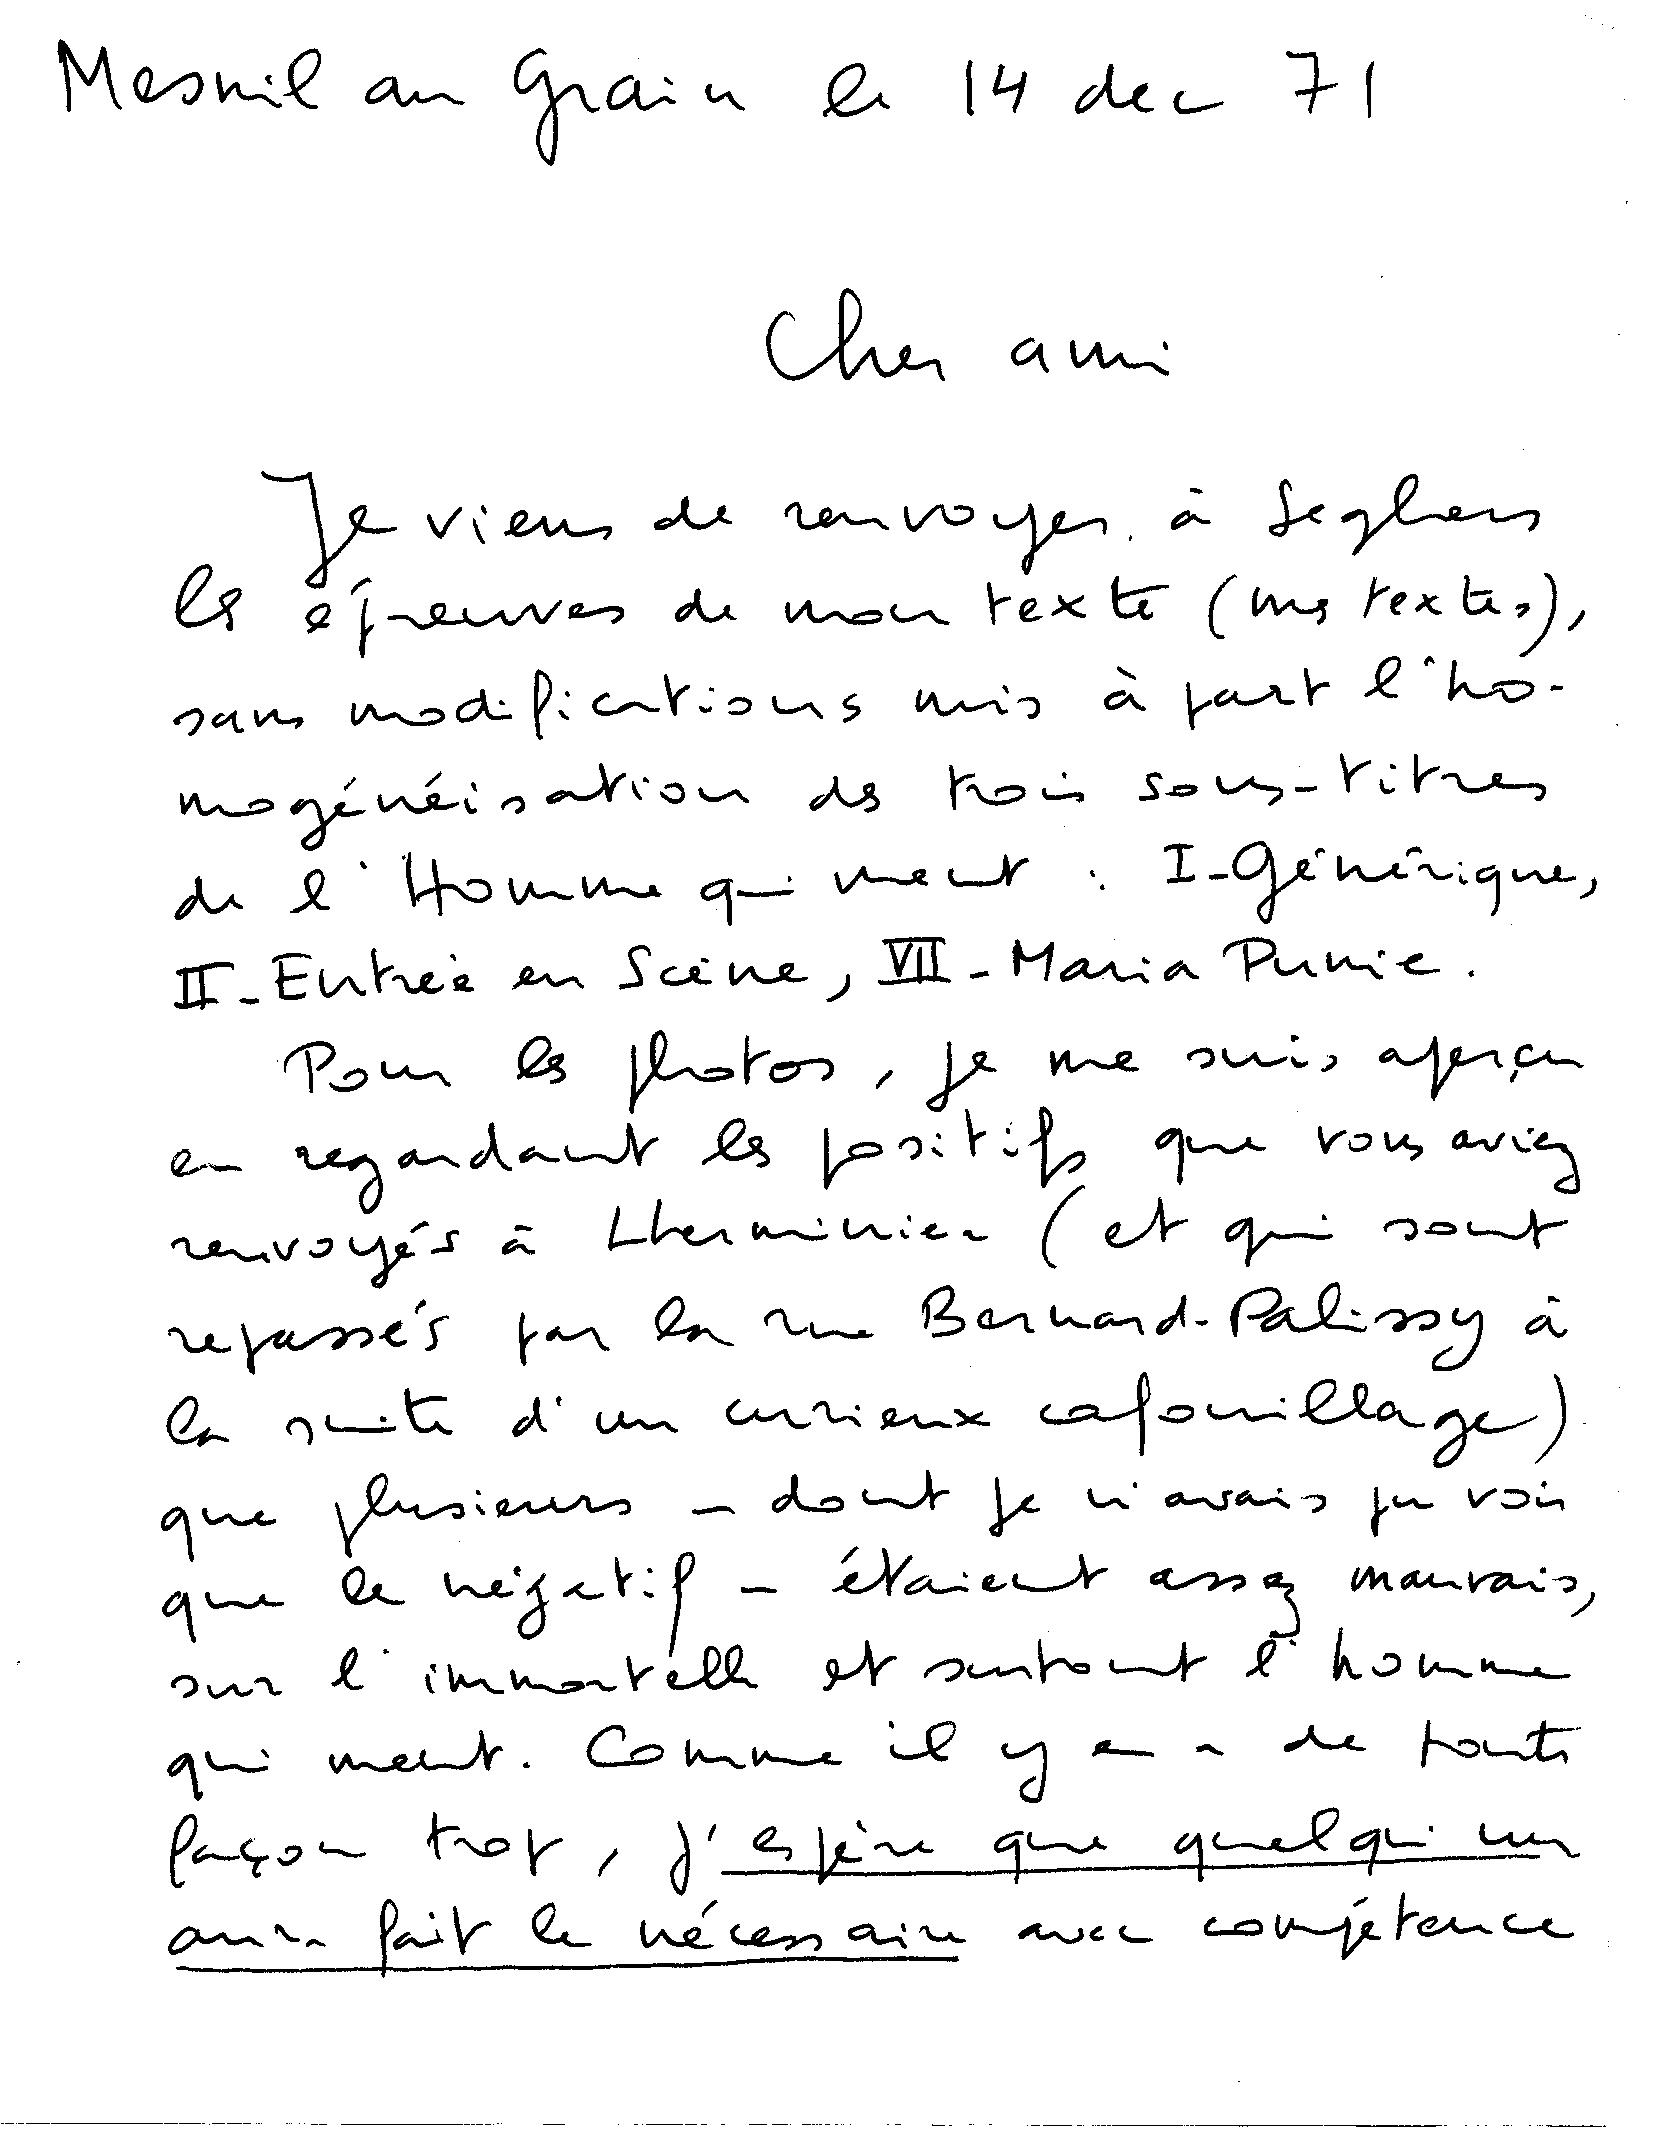 Mesnil au Grain le 14 dec 71
Cher ami
Je viens de renvoyer à Seghers
les épreuves de mon texte (mes textes),
sans modifications mis à part l'ho-
mogénéisation des trois sous-titres
de l'Homme qui ment : I-Générique,
II-Entrée en Scène, VII-Maria Punie.
Pour les photos, je me suis aperçu
en regardant les positifs que vous aviez
renvoyés à Lherminier (et qui sont
repassés par la rue Bernard-Palissy à
la suite d'un curieux cafouillage)
que plusieurs - dont je n'avais pu voir
que le négatif - étaient assez mauvais,
sur l'immortelle et surtout l'homme
qui ment. Comme il y en a de toute
façon trop, j'espère que quelqu'un
aura fait le nécessaire avec compétence